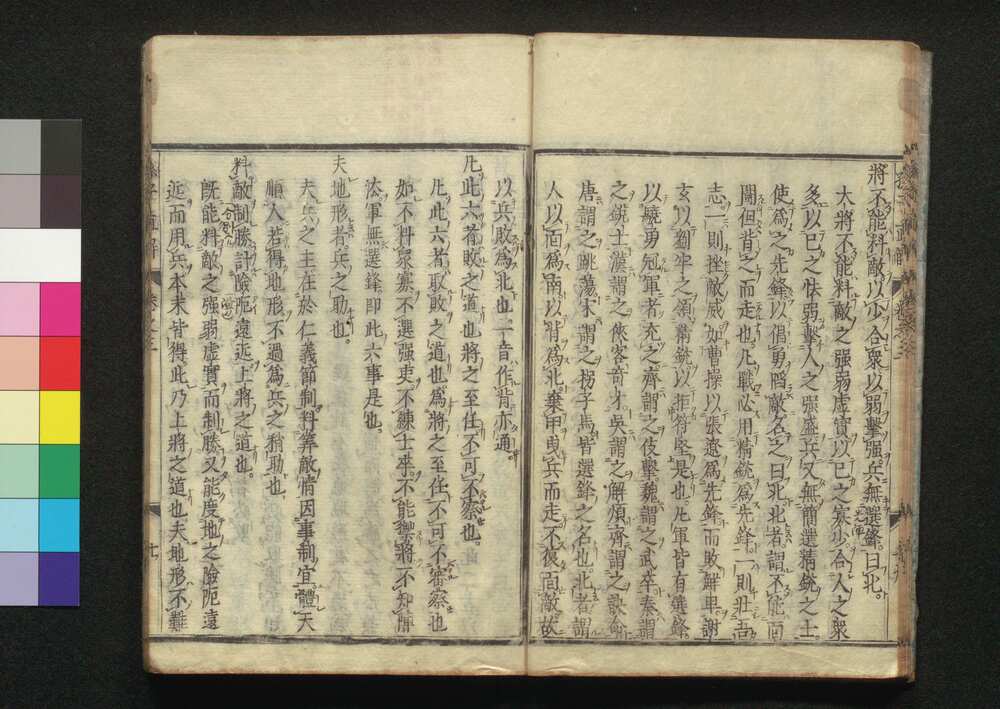 將不能料敵以少合衆以弱擊强兵無選鋒曰北。
大將不能料敵之强弱虛實以已之寡少合人之衆
多以已之怯弱擊人之强盛兵又無簡選精銳之士
使爲之先鋒以倡勇鬥敵名之曰北北者謂不能面
鬪但背之而走也凡戰必用精銳爲先鋒一則壯吾
志一則挫敵威如曹操以張遼爲先鋒而敗鮮卑謝
玄以劉牢之領精銳以拒苻堅是也凡軍皆有選鋒
以驍勇冠軍者充之齊謂之伎擊魏謂之武卒秦謂
之銳士漢謂之俠客奇才吳謂之解煩齊謂之訣命
唐謂之跳蕩宋謂之拐子馬皆選鋒之名也北者謂
人以面爲南以背爲北棄甲曳兵而走不復面敵故
以兵敗爲北也一音作背亦通
凡此六者敗之道也將之至任不可不察也。
凡此六者取敗之道也爲將之至任不可不審察也
如不料衆寡不選强吏不練士卒不能禦將不知陣
法軍無選鋒即此六事是也
夫地形者兵之助也。
夫兵之主在於仁義節制料筭敵情因事制宜體天
順人若得地形不過爲兵之稍助也
料敵制勝計險阨遠近上將之道也。
旣能料敵之强弱虛實而制勝又能度地之險阨遠
近而用兵本末皆得此乃上將之道也夫地形不難